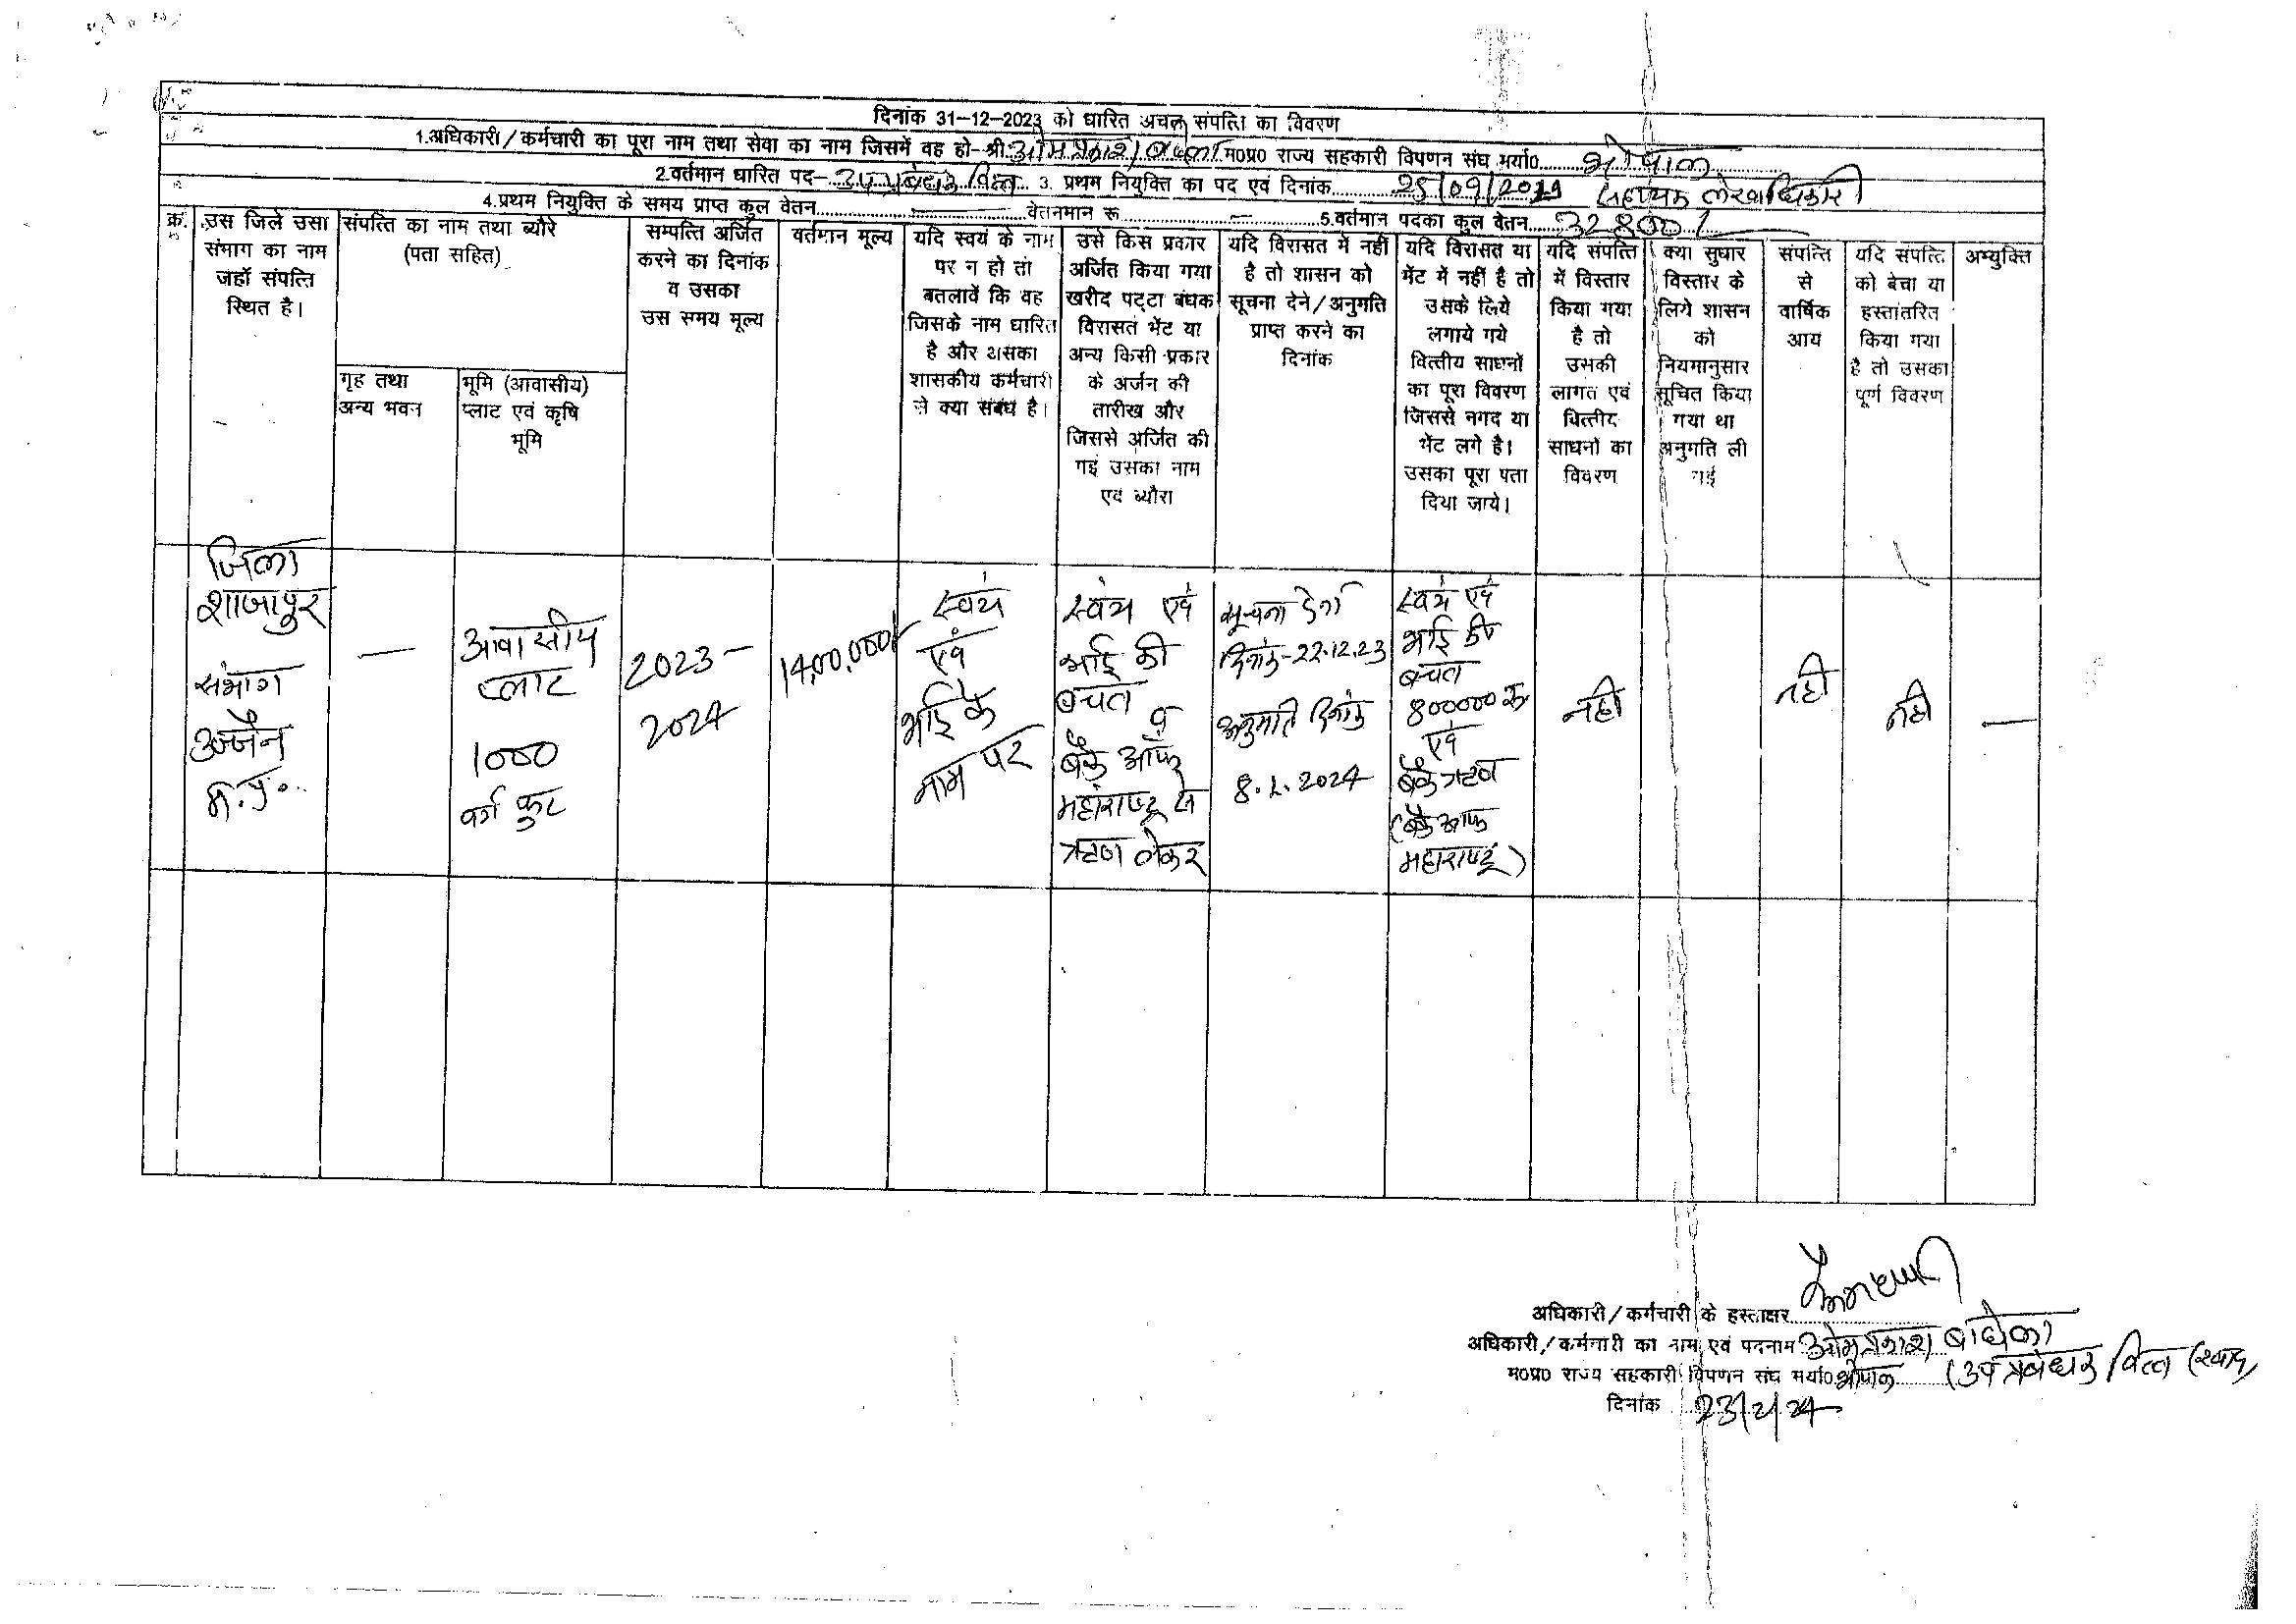 दिनांक 31-12-2023 को धारित अचल संपत्ति का विवरण
1.अधिकारी/कर्मचारी का पूरा नाम तथा सेवा का नाम जिसमें वह हो-श्री ओमप्रकाश बघेला म0प्र0 राज्य सहकारी विपणन संघ मर्या0 भोपाल
2.वर्तमान धारित पद- उपप्रबंधक वित्त 3. प्रथम नियुक्ति का पद एवं दिनांक 25/09/2019 सहायक लेखाधिकारी
4.प्रथम नियुक्ति के समय प्राप्त कुल वेतन — वेतनमान रू — 5.वर्तमान पदका कुल वेतन 32800/-
क्र.
उस जिले उसा
संभाग का नाम
जहाँ संपत्ति
स्थित है।
संपत्ति का नाम तथा ब्यौरे
(पता सहित)
गृह तथा
अन्य भवन
भूमि (आवासीय)
प्लाट एवं कृषि
भूमि
सम्पत्ति अर्जित
करने का दिनांक
व उसका
उस समय मूल्य
वर्तमान मूल्य
यदि स्वयं के नाम
पर न हो तो
बतलावें कि वह
जिसके नाम धारित
है और उसका
शासकीय कर्मचारी
से क्या संबंध है।
उसे किस प्रकार
अर्जित किया गया
खरीद पट्टा बंधक
विरासत भेंट या
अन्य किसी प्रकार
के अर्जन की
तारीख और
जिससे अर्जित की
गई उसका नाम
एवं ब्यौरा
यदि विरासत में नहीं
है तो शासन को
सूचना देने/अनुमति
प्राप्त करने का
दिनांक
यदि विरासत या
भेंट में नहीं है तो
उसके लिये
लगाये गये
वित्तीय साधनों
का पूरा विवरण
जिससे नगद या
भेंट लगे है।
उसका पूरा पता
दिया जाये।
यदि संपत्ति
में विस्तार
किया गया
है तो
उसकी
लागत एवं
वित्तीय
साधनों का
विवरण
क्या सुधार
विस्तार के
लिये शासन
को
नियमानुसार
सूचित किया
गया था
अनुमति ली
गई
संपत्ति
से
वार्षिक
आय
यदि संपत्ति
को बेचा या
हस्तांतरित
किया गया
है तो उसका
पूर्ण विवरण
अभ्युक्ति
जिला
शाजापुर
संभाग
उज्जैन
म.प्र.
—
आवासीय
प्लाट
1000
वर्ग फुट
2023-
2024
14,00,000/-
स्वयं
एवं
भाई के
नाम पर
स्वंय एवं
भाई की
बचत
व
बैंक ऑफ
महाराष्ट्र से
ऋण लेकर
सूचना देना
दिनांक-22.12.23
अनुमति दिनांक
8.1.2024
स्वंय एवं
भाई की
बचत
800000 रू
एवं
बैंक ऋण
(बैंक ऑफ
महाराष्ट्र)
नहीं
नहीं
नहीं
—
अधिकारी/कर्मचारी के हस्ताक्षर
अधिकारी/कर्मचारी का नाम एवं पदनाम ओमप्रकाश बाघेला
म0प्र0 राज्य सहकारी विपणन संघ मर्या0 भोपाल (उप प्रबंधक वित्त (खाद)
दिनांक 23/2/24